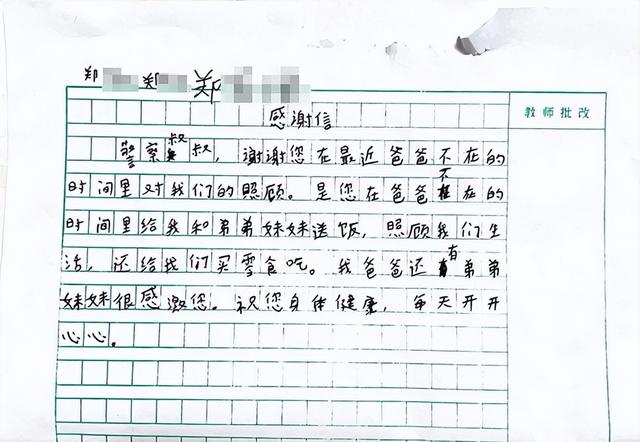 郑 郑 郑
感谢信
教师批改
警察叔叔，谢谢您在最近爸爸不在的
时间里对我们的照顾。是您在爸爸不在的
时间里给我和弟弟妹妹送饭，照顾我们生
活，还给我们买零食吃。我爸爸还有弟弟
妹妹很感激您。祝您身体健康，每天开开
心心。